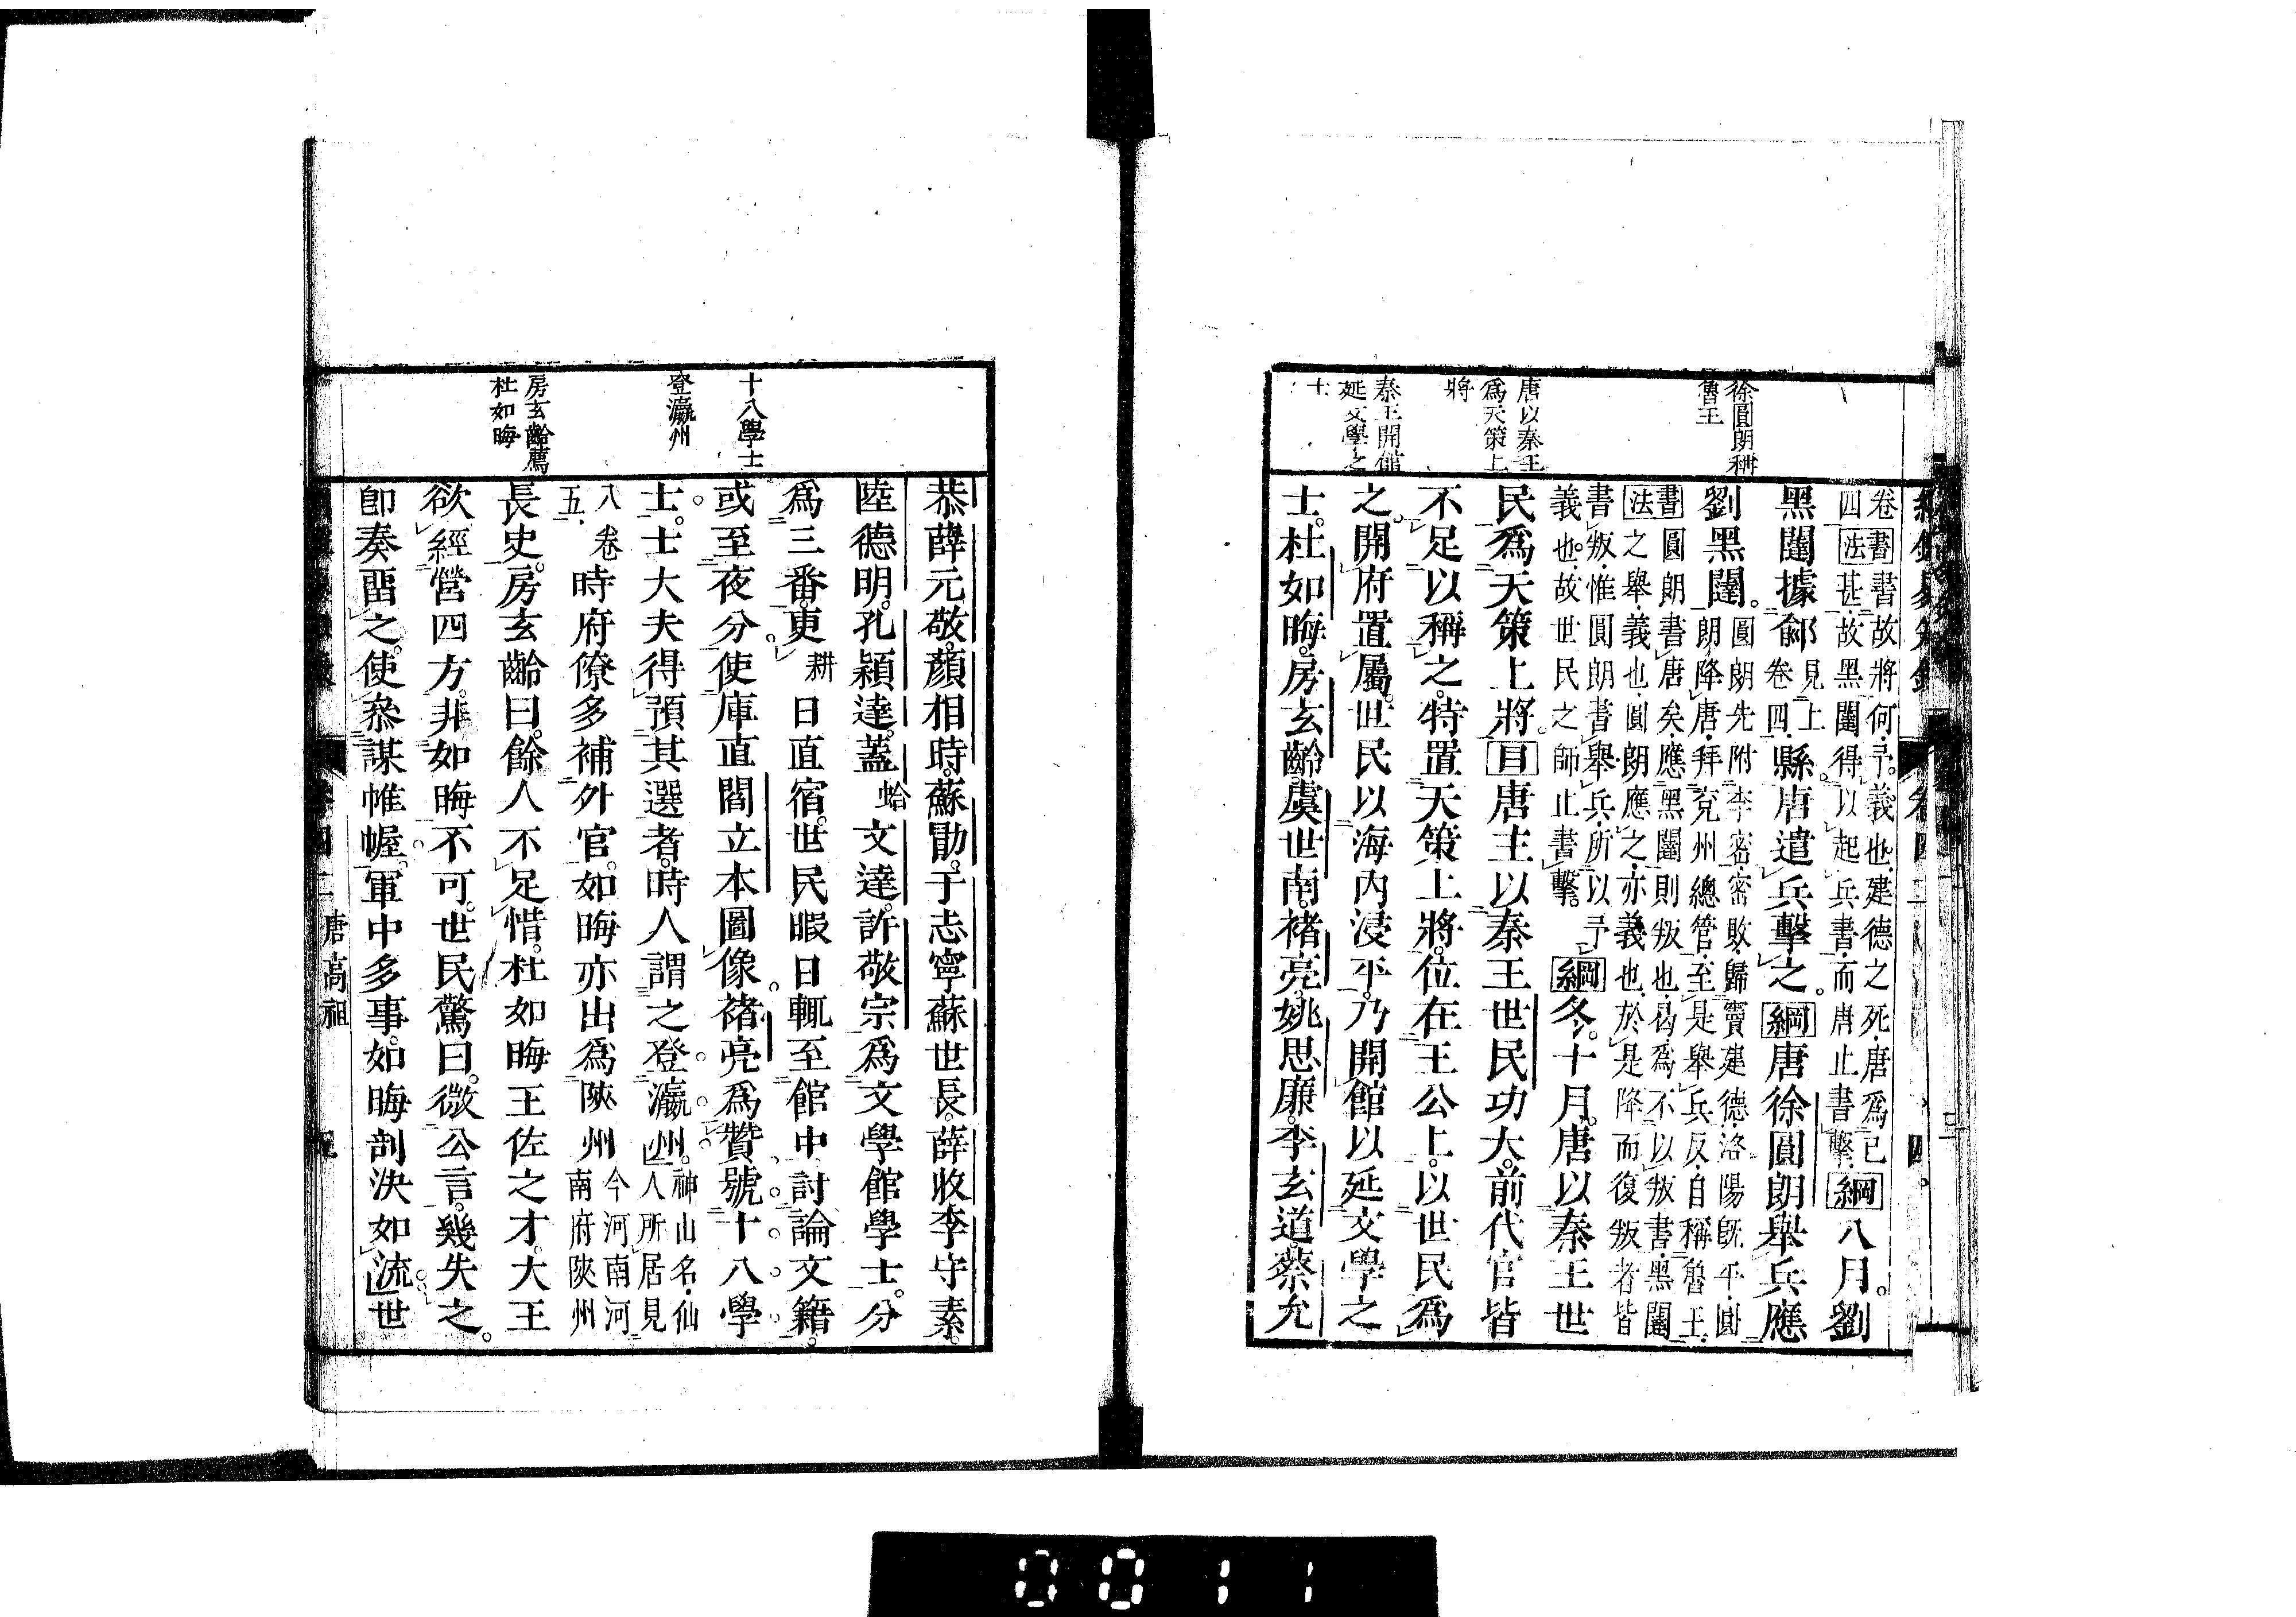 徐圓朗稱
魯王
唐以秦王
爲天策上
將
秦王開館
延文學之
士
卷四
書法
書故將何予義也建德之死唐爲已
甚故黑闥得以起兵書而唐止書擊
綱八月劉
黑闥據鄃
見上
卷四
縣唐遣兵擊之綱唐徐圓朗舉兵應
劉黑闥
圓朗先附李密密敗歸竇建德洛陽既平圓
朗降唐拜兗州總管至是舉兵反自稱魯王
書法
圓朗書唐矣應黑闥則叛也曷爲不以叛書黑闥
之舉義也圓朗應之亦義也於是降而復叛者皆
書叛惟圓朗書舉兵所以予
義也故世民之師止書擊
綱冬十月唐以秦王世
民爲天策上將目唐主以秦王世民功大前代官皆
不足以稱之特置天策上將位在王公上以世民爲
之開府置屬世民以海內浸平乃開館以延文學之
士杜如晦房玄齡虞世南褚亮姚思廉李玄道蔡允
十八學士
登瀛州
房玄齡薦
杜如晦
恭薛元敬顏相時蘇勖于志寧蘇世長薛收李守素
陸德明孔穎達蓋
蛤
文達許敬宗爲文學館學士分
爲三番更
耕
日直宿世民暇日輒至館中討論文籍
或至夜分使庫直閻立本圖像褚亮爲贊號十八學
士士大夫得預其選者時人謂之登瀛州
神山名仙
人所居見
八卷
五
時府僚多補外官如晦亦出爲陝州
今河南河
南府陝州
長史房玄齡曰餘人不足惜杜如晦王佐之才大王
欲經營四方非如晦不可世民驚曰微公言幾失之
卽奏畱之使叅謀帷幄軍中多事如晦剖決如流世
唐高祖
0011